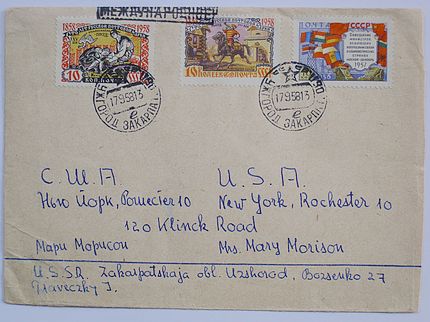 МЕЖДУНАРОДНОЕ
1858 1958
10 КОП. ПОЧТА СССР
1858 1958
10 КОПЕЕК ПОЧТА СССР
ПОЧТА СССР
1957
УЖГОРОД ЗАКАРПАТ.
1795813
е
УЖГОРОД ЗАКАРПАТ.
1795813
е
С.Ш.А. U.S.A.
Нью Йорк, Рошестер 10 New York, Rochester 10
120 Klinck Road
Мари Морисон Mrs. Mary Morison
U.S.S.R. Zakarpatskaja obl. Uzshorod, Bozsenko 27
J.